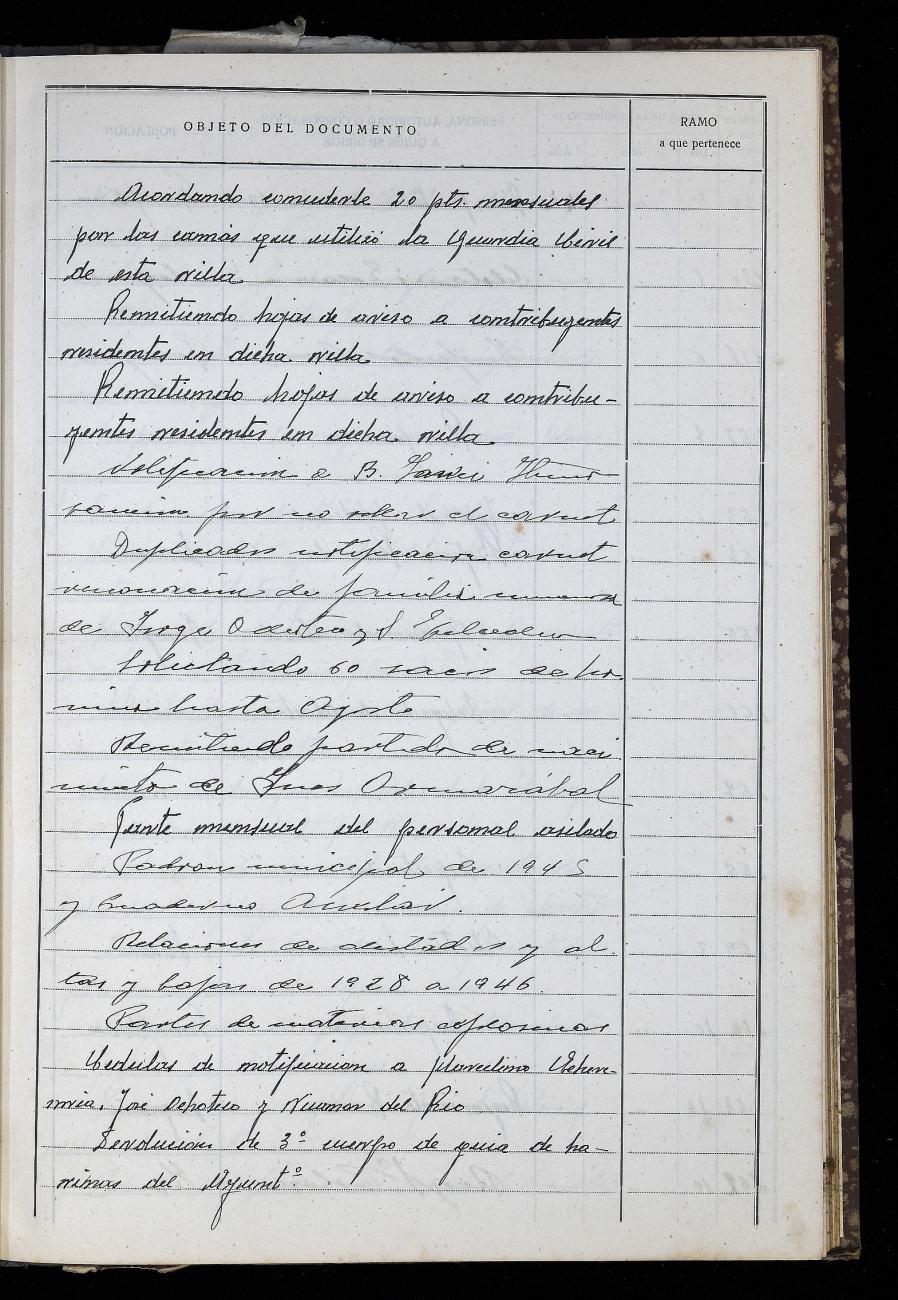 OBJETO DEL DOCUMENTO
RAMO
a que pertenece
Acordando concederle 20 pts. mensuales
por las camas que utilizó la Guardia Civil
de esta villa
Remitiendo hojas de aviso a contribuyentes
residentes en dicha villa
Remitiendo hojas de aviso a contribu-
yentes residentes en dicha villa
Notificacion a B.
por no el carnet
Duplicados notificacion carnet
renovación de familia numerosa
de Jorge y S.
Solicitando 60 sacos de ha
rina hasta Agosto
Remitiendo partida de naci
miento de Ines Ormazábal
Parte mensual del personal asilado
Padron municipal de 1945
y Cuaderno Auxiliar.
Relaciones de y al
tas y bajas de 1928 a 1946.
Partes de materias explosivas
Cedulas de notificacion a Marcelino Echeve-
rria, José y Nicanor del Rio
Devolución de 3º cuerpo de guia de ha-
rinas del Ayuntº